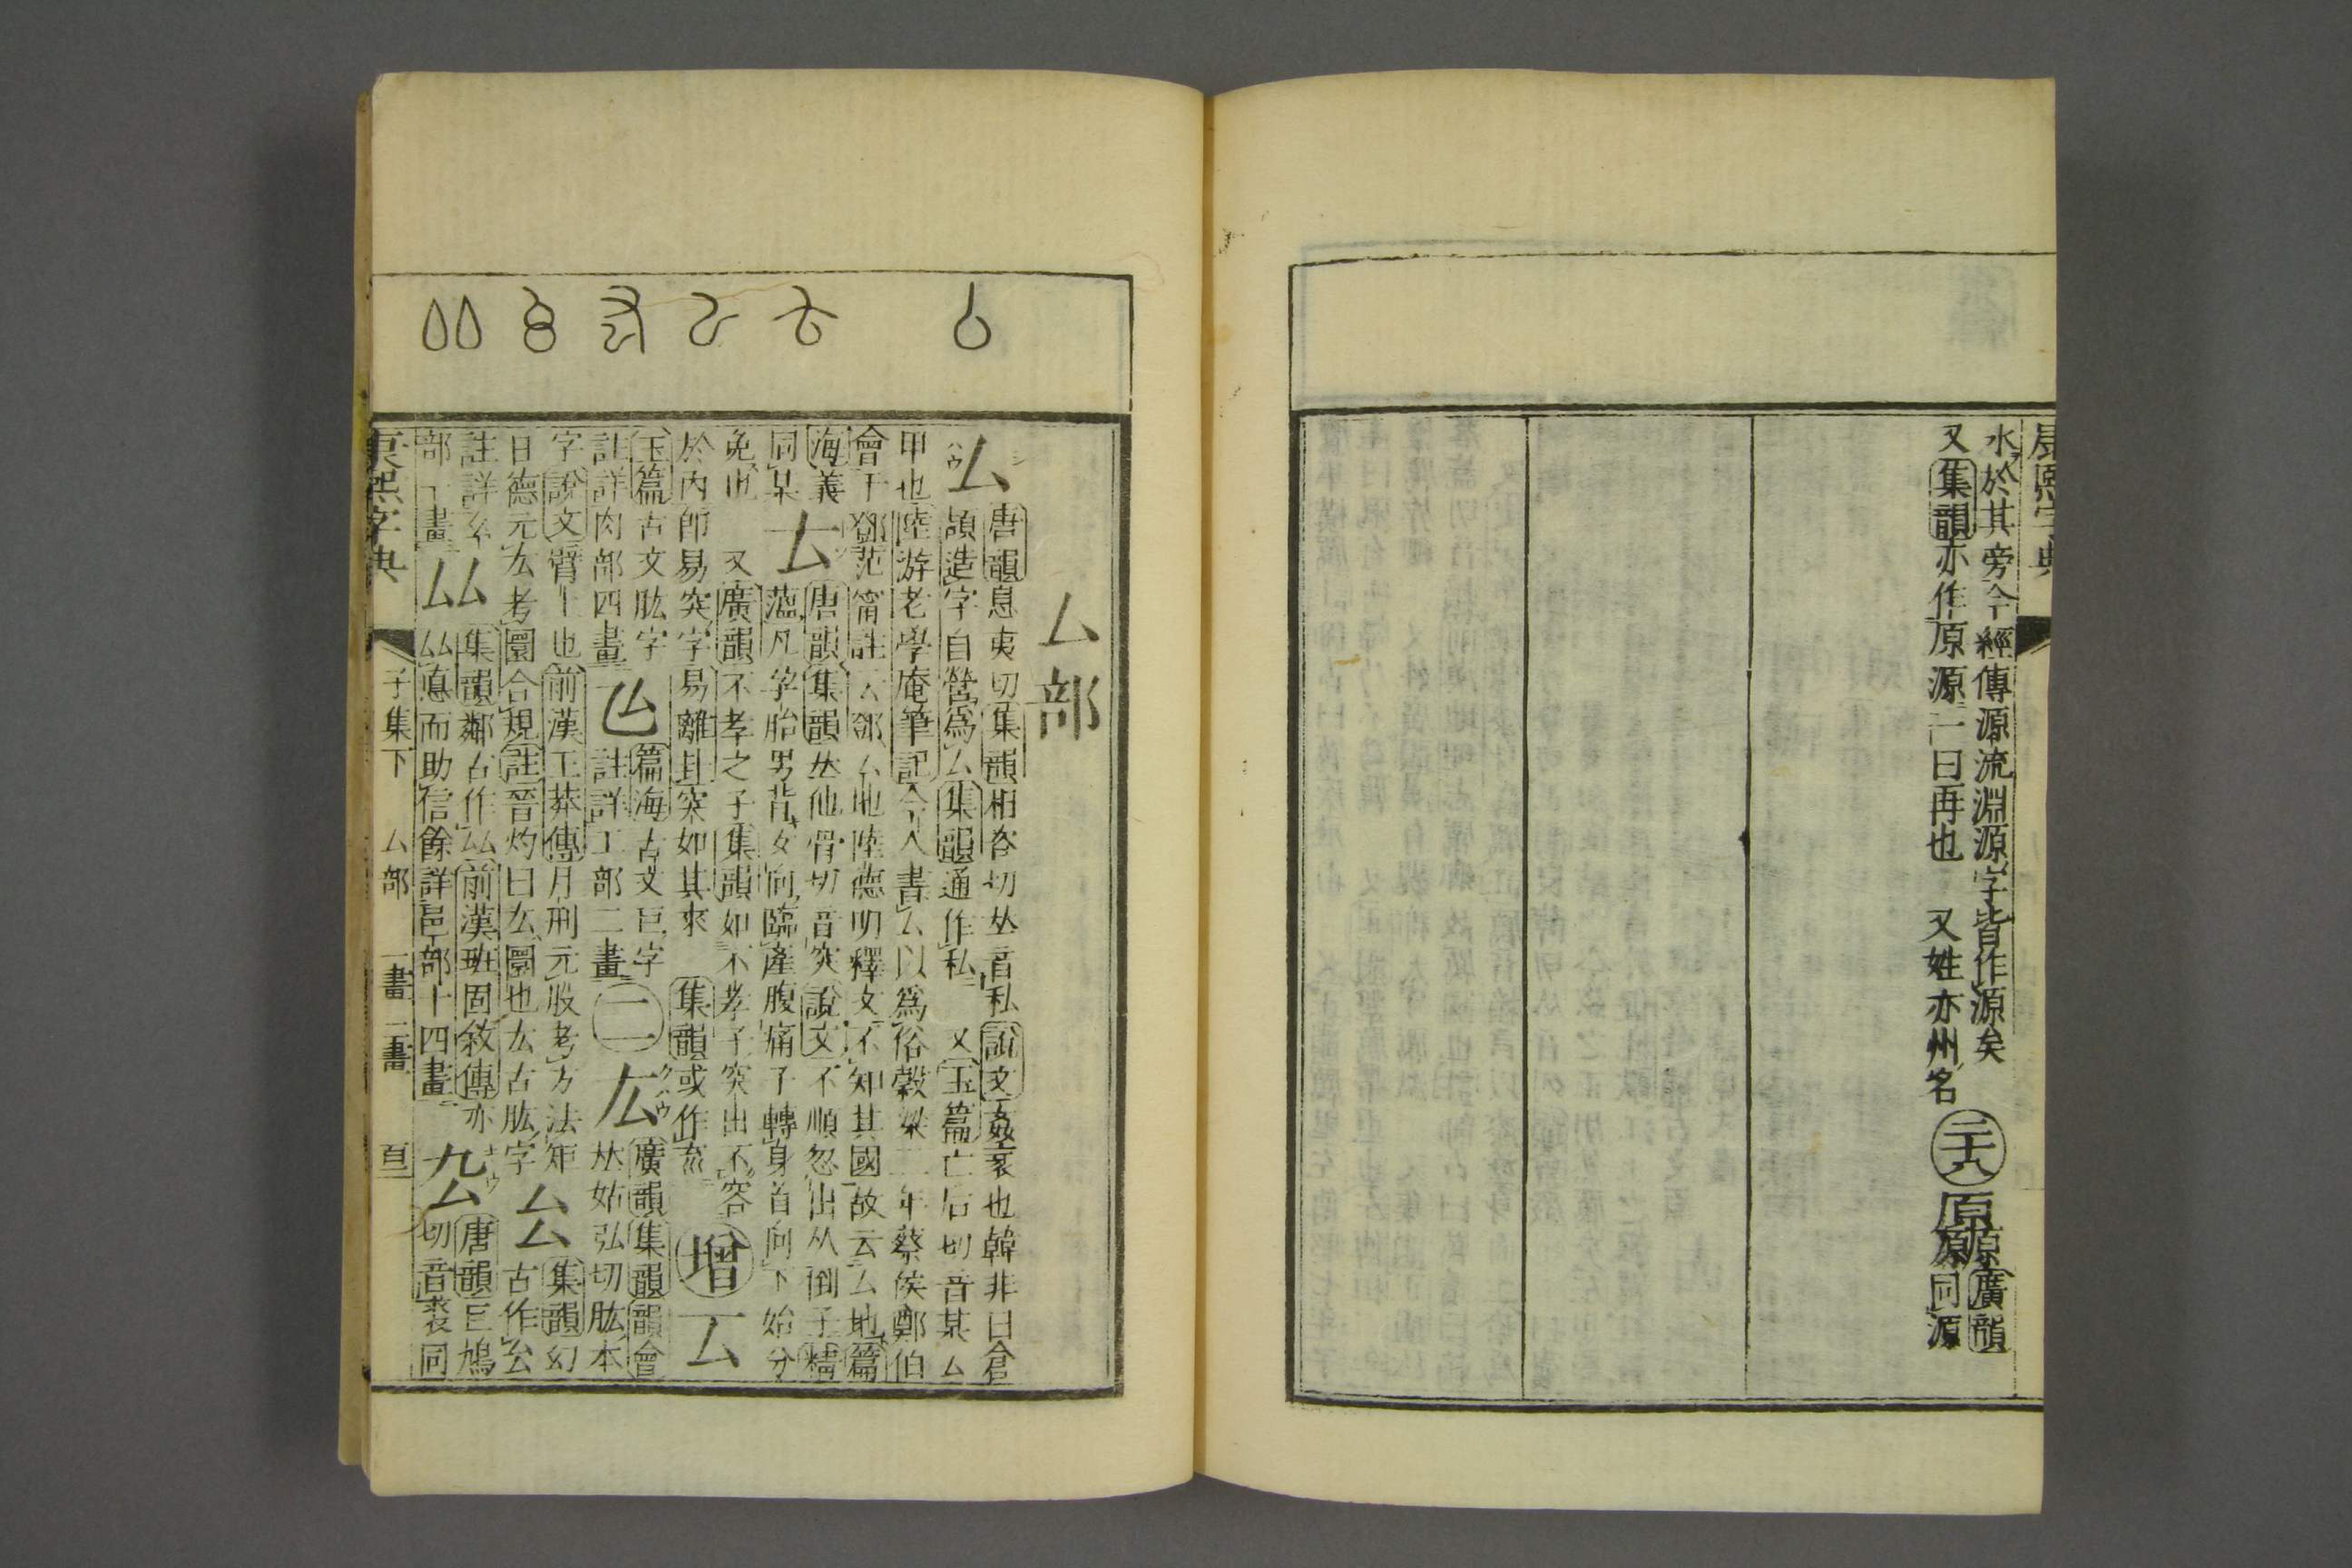 康熙字典
水於其旁今經傳源流淵源字皆作源矣
又集韻亦作原源一曰再也 又姓亦州名 二十八 廣韻同源
厶部
厶 ハウ シ
唐韻息夷切集韻相咨切𠀤音私說文姦衺也韓非曰倉
頡造字自營爲厶集韻通作私 又玉篇亡后切音某厶
甲也陸游老學庵筆記今人書厶以爲俗穀梁二年蔡侯鄭伯
會于鄧范甯註厶鄧厶地陸德明釋文不知其國故云厶地篇
海義同某 𠫓 唐韻集韻𠀤他骨切音突說文不順忽出从倒子精
薀凡字胎男背女向臨產腹痛子轉身首向下始分
免也 又廣韻不孝之子集韻如不孝子突出不容
於內卽易突字易離卦突如其來 集韻或作㐬 增 厷
玉篇古文肱字 註詳肉部四畫
篇海古文巨字 註詳工部二畫 二 厷 クハウ 廣韻集韻韻會
𠀤姑弘切肱本
字說文臂上也前漢王莽傳月刑元股考方法矩
曰德元厷考圜合規註晉灼曰厷圜也厷古肱字 厸 集韻幻
古作厸
註詳幺部一畫 厸 集韻鄰古作厸前漢班固敘傳亦
厸惪而助信餘詳邑部十四畫 厹 キウ 唐韻巨鳩
切音裘同
康熙字典 子集下 厶部 一畫 二畫